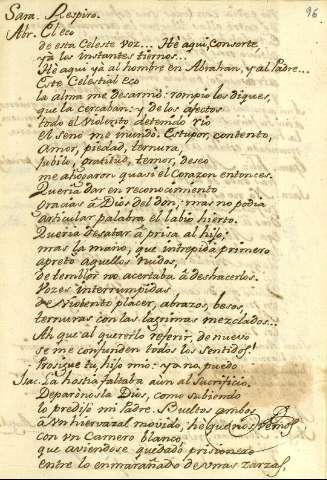 96
Sara. Respiro.
Abr. El eco
de esta Celeste voz... Hè aqui, Consorte,
yà los instantes tiernos...
Hè aqui yà al hombre en Abrahan, y al Padre...
Este Celestial eco
la alma me desarmò: rompio los diques,
que la cercaban: y de los afectos
todo el violento detenido rio
el seno me inundò. Estupor, contento,
Amor, piedad, ternura,
Jubilo, gratitud, temor, deseo
me ahogaron quasi el Corazon entonces.
Queria dar en reconocimiento
Gracias â Dios del don; mas no podia
articular palabra el labio hierto.
Queria desatar â prisa al hijo;
mas la mano, que intrepida primero
apretò aquellos nudos,
de temblor no acertaba â deshacerlos.
Vozes interrumpidas
de violento placer, abrazos, besos,
ternuras con las lagrimas mezclados...
Ah que al quererlo referir, de nuevo
se me confunden todos los sentidos!
Prosigue tu, hijo mio: ya no puedo
Isac. La hostia faltaba aùn al Sacrificio.
Deparònosla Dios, como subiendo
lo predijo mi Padre. Bueltos ambos
â un hierbazal movido, he que nos vemos
con un Carnero blanco
que aviendose quedado prisionero
entre lo enmarañado de unas zarzas,